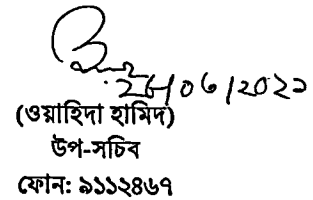 26/06/2022
(ওয়াহিদা হামিদ)
উপ-সচিব
ফোন: ৯১১২৪৬৭